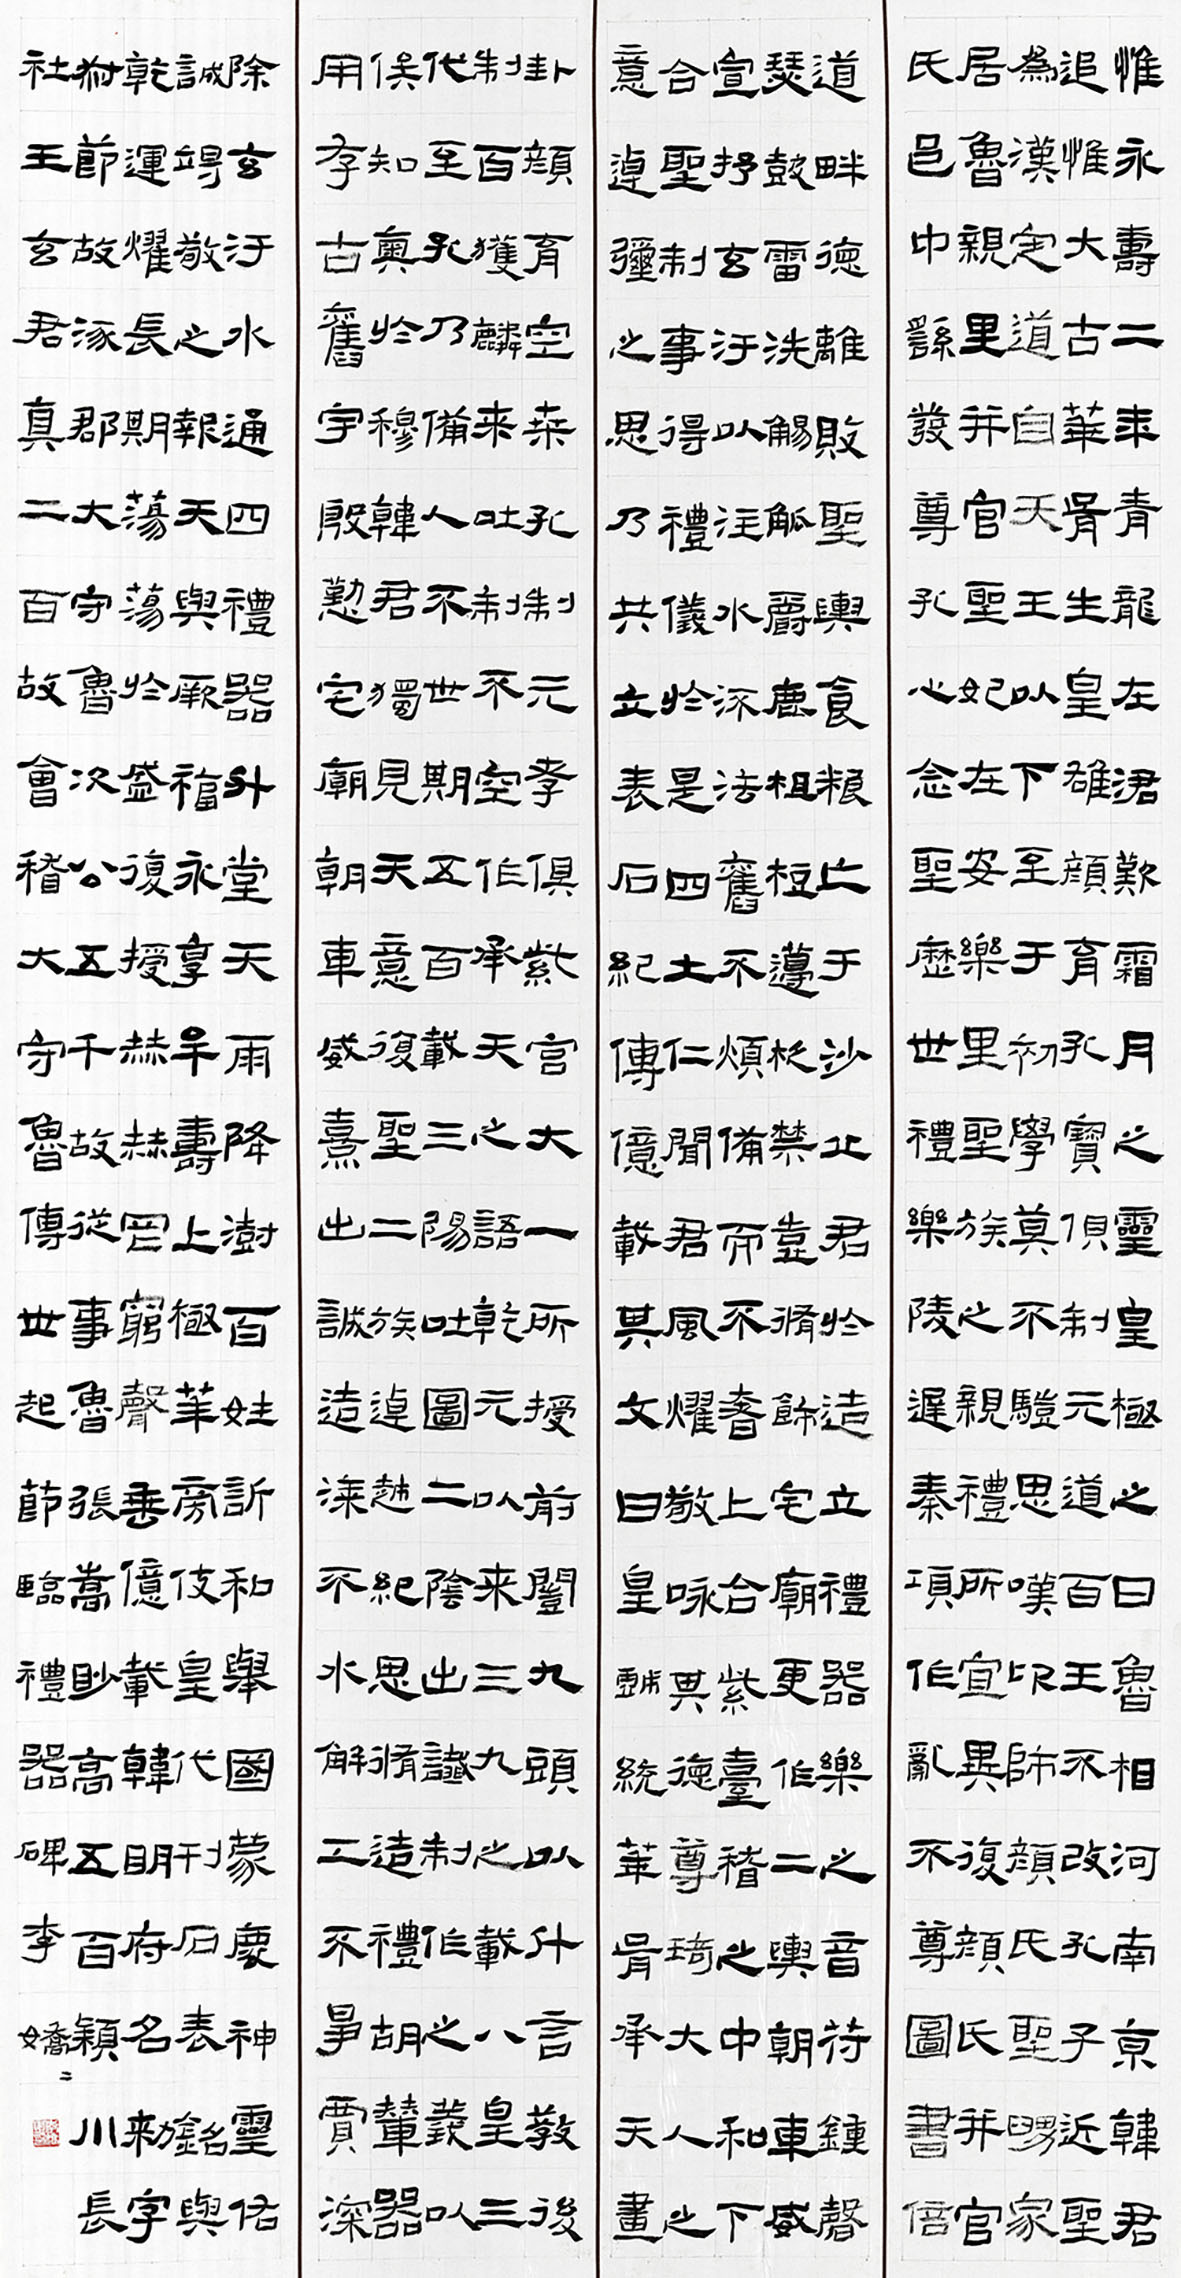 惟永壽二年青龍在涒歎霜月之靈皇極之日魯相河南京韓君
追惟大古華胥生皇雄顏育孔寶俱制元道百王不改孔子近聖
為漢定道自天王以下至于初學莫不驥思嘆卬師顏氏聖舅家
居魯親里并官聖妃在安樂里聖族之親禮所宜異復顏氏并官
氏邑中繇發尊孔心念聖歷世禮樂陵遲秦項作亂不尊圖書倍
道畔德離敗聖輿食粮亡于沙丘君於造立禮器樂之音符鍾磬
瑟鼓雷洗觴觚爵鹿柤梪籩柉禁壺脩飾宅廟更作二輿朝車威
宣抒玄汙以注水流法舊不煩備而不奢上合紫臺稽之中和下
合聖制事得禮儀於是四土仁聞君風燿敬咏其德尊琦大人之
意逴彌之思乃共立表石紀傳億載其文曰皇戲統華胥承天畫
卦顏育空桑孔制元孝俱紫宮大一所授前闓九頭以什言教後
制百獲麟來吐制不空作承天之語乾元以來三九之載八皇三
代至孔乃備人不世期五百載三陽吐圖二陰出讖制作之義以
俟知奧於穆韓君獨見天意復聖二族逴越紀思脩造禮胡輦器
用存古舊宇殷懃宅廟朝車威熹出誠造㴃不水解工不爭賈深
除玄汙水通四禮器升堂天雨降澍百姓訢和舉國蒙慶神靈佑
誠竭敬之報天與厥福永享牟壽上極華旁伎皇代刊石表銘與
乾運燿長期蕩蕩於盛復授赫赫罔窮聲垂億載韓明府名勑字
叔節故涿郡大守魯次公五千故從事魯張嵩眇高五百潁川長
社王玄君真二百故會稽大守魯傳世起節臨禮器碑李嬌嬌